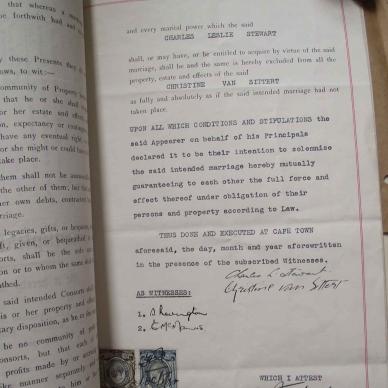 that whereas a
be forthwith had
by these Presents they
ows, to wit:—
ommunity of Property
that he or she shall
or her estate and effects
on, expectancy or contingen
have any eventual right
or she might or could have
take place.
them shall not be answerable
the other of them; but that
own debts, contracted
rriage.
legacies, gifts, or bequests,
ft, given, or bequeathed
orts, shall be the sole
on or to whom the same sh
thed.
said intended Consorts shall
is or her property and effects
tary disposition, as he or she
be no community of
onsorts, but that each
profits made by or
like manner separately
and every marital power which the said
CHARLES LESLIE STEWART
shall, or may have, or be entitled to acquire by virtue of the said
marriage, shall be and the same is hereby excluded from all the
property, estate and effects of the said
CHRISTINE VAN SITTERT
as fully and absolutely as if the said intended marriage had not
taken place.
UPON ALL WHICH CONDITIONS AND STIPULATIONS the
said Appearer on behalf of his Principals
declared it to be their intention to solemnise
the said intended marriage hereby mutually
guaranteeing to each other the full force and
effect thereof under obligation of their
persons and property according to Law.
THUS DONE AND EXECUTED AT CAPE TOWN
aforesaid, the day, month and year aforewritten
in the presence of the subscribed Witnesses.
Charles L Stewart
Christine van Sittert
AS WITNESSES:
1.
2.
WHICH I ATTEST